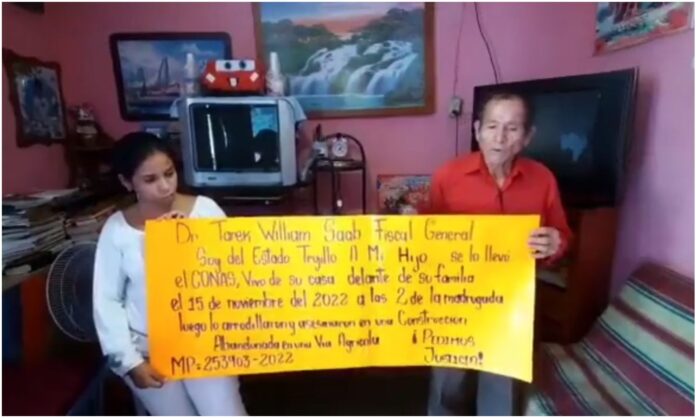 Dr Tarek William Saab Fiscal General
Soy del Estado Trujillo A Mi Hijo se lo llevó
el CONAS, Vivo de su casa delante de su familia
el 15 de noviembre del 2022 a las 2 de la madrugada
luego lo arrodillaron y asesinaron en una Construccion
Abandonada en una Via Agricola ¡Pedimos
MP: 253903-2022 Justicia!